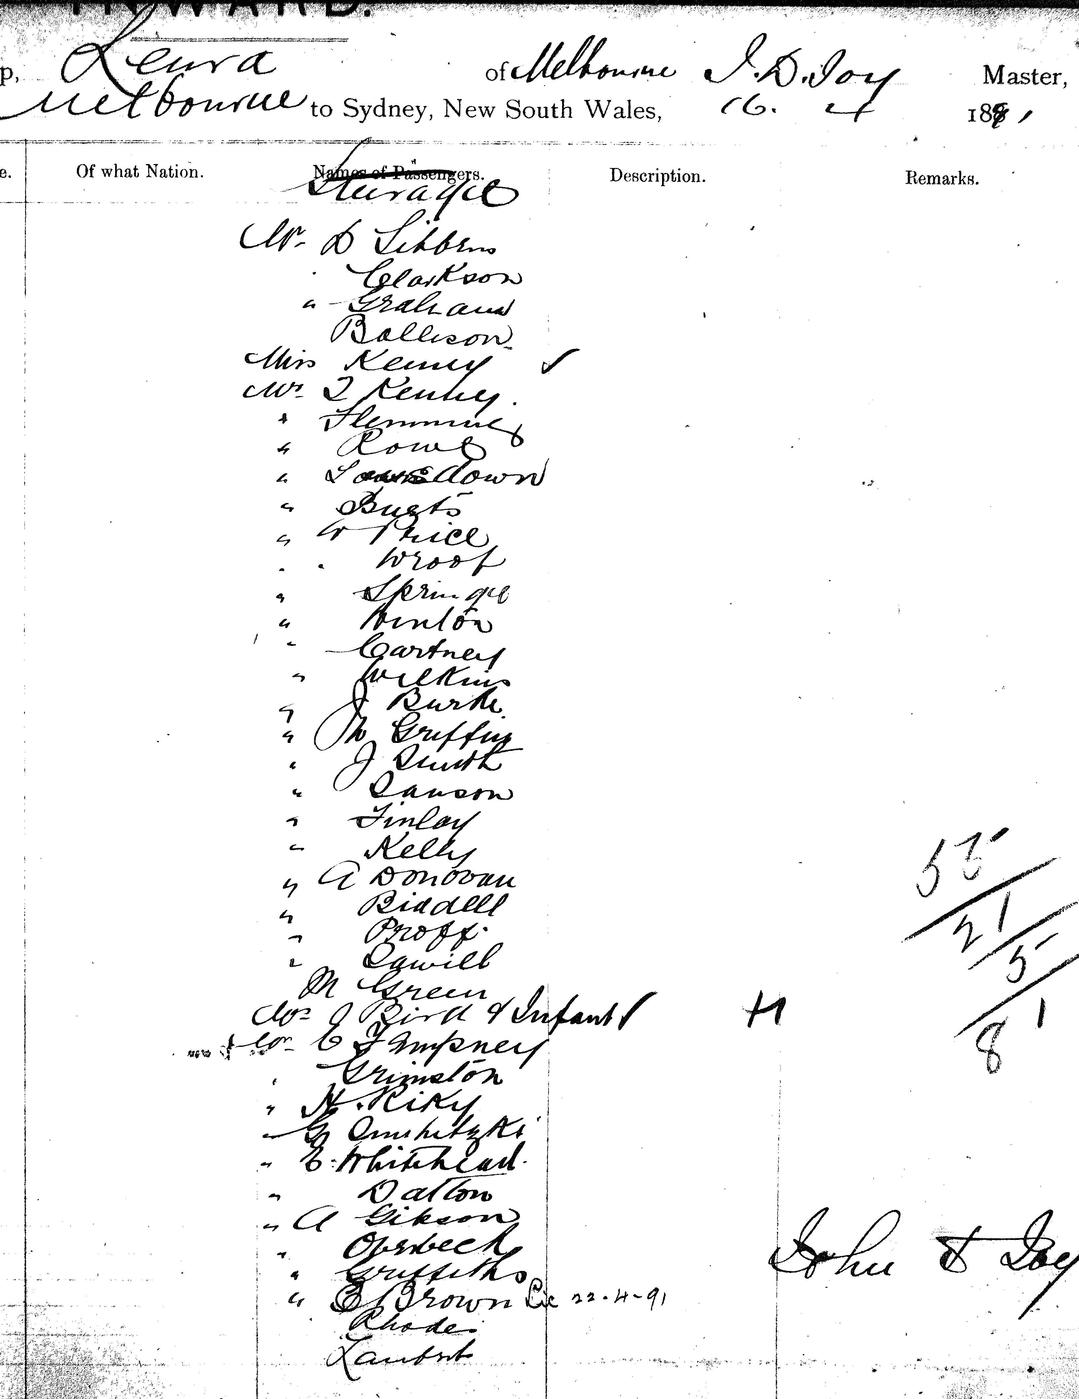 INWARD.
p, Leura of Melbourne J. D. Joy Master,
Melbourne to Sydney, New South Wales, 16. 4 1891,
e. Of what Nation. Names of Passengers. Description. Remarks.
Steerage
Mr D Sibbens
Clarkson
" Graham
Ballison
Miss Kenny ✓
Mr T Kenny.
" Flemming
" Rowe
" down
"
" W Price
" Wroof
" Springe
" Hinton
" Cartney
" Wilkins
" J Burke
" M Griffin
" J Smith
" Dawson
" Finlay
" Kelly
" A Donovan
" Biddell
" Proff.
"
M Green
Mrs J Bird & Infant ✓ H
Mr C Timpsney
Grimston
" H. Riky
" G
" E. Whitehead.
" Dalton
" A Gibson
" Overbeck
" Griffiths
" E Brown Lic 22-4-91
Rhodes
Lambert
55
21
5
81
John D Joy